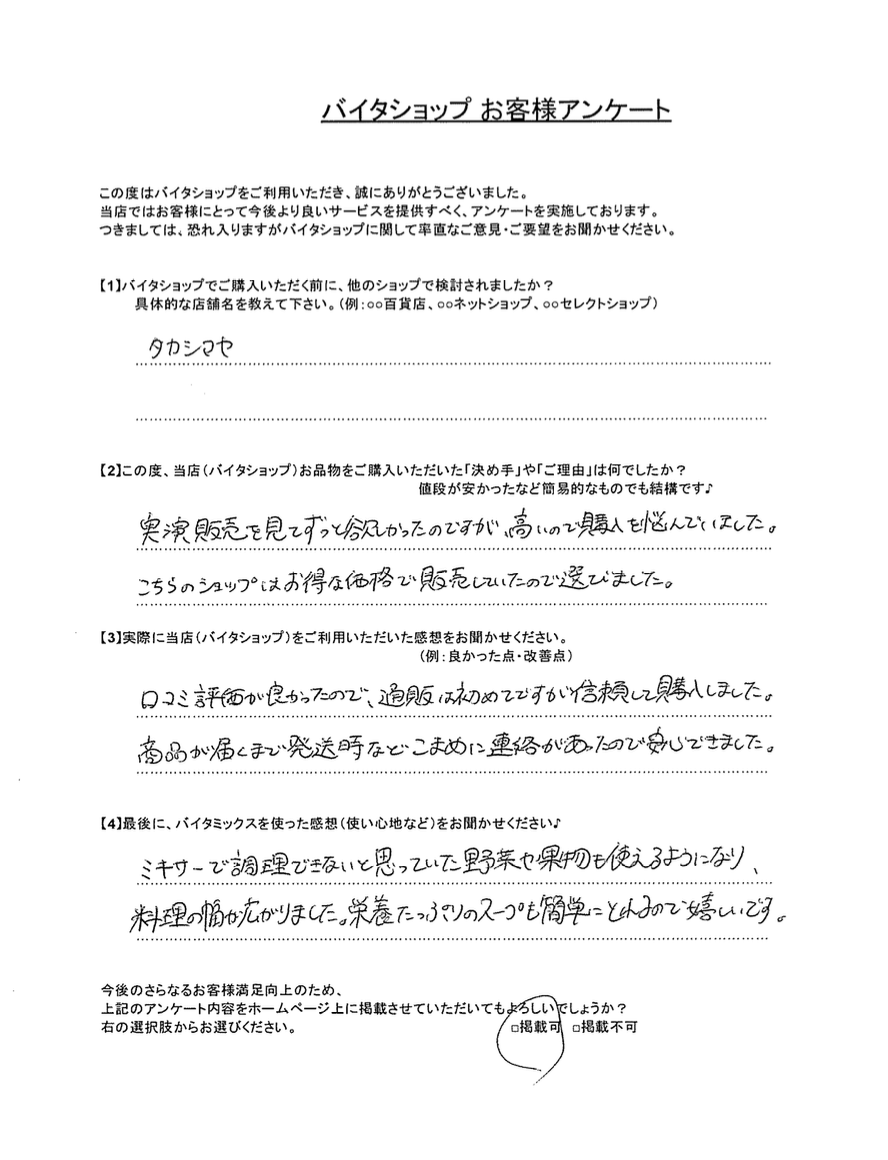 バイタショップ お客様アンケート
この度はバイタショップをご利用いただき、誠にありがとうございました。
当店ではお客様にとって今後より良いサービスを提供すべく、アンケートを実施しております。
つきましては、恐れ入りますがバイタショップに関して率直なご意見・ご要望をお聞かせください。
【1】バイタショップでご購入いただく前に、他のショップで検討されましたか？
具体的な店舗名を教えて下さい。（例：○○百貨店、○○ネットショップ、○○セレクトショップ）
タカシマヤ
【2】この度、当店（バイタショップ）お品物をご購入いただいた「決め手」や「ご理由」は何でしたか？
値段が安かったなど簡易的なものでも結構です♪
実演販売を見てずっと欲しかったのですが、高いので購入を悩んでいました。
こちらのショップはお得な価格で販売していたので選びました。
【3】実際に当店（バイタショップ）をご利用いただいた感想をお聞かせください。
（例：良かった点・改善点）
口コミ評価が良かったので、通販は初めてですが信頼して購入しました。
商品が届くまで発送時などこまめに連絡があったので安心できました。
【4】最後に、バイタミックスを使った感想（使い心地など）をお聞かせください♪
ミキサーで調理できないと思っていた野菜や果物も使えるようになり、
料理の幅が広がりました。栄養たっぷりのスープも簡単にとれるので嬉しいです。
今後のさらなるお客様満足向上のため、
上記のアンケート内容をホームページ上に掲載させていただいてもよろしいでしょうか？
右の選択肢からお選びください。 □掲載可 □掲載不可